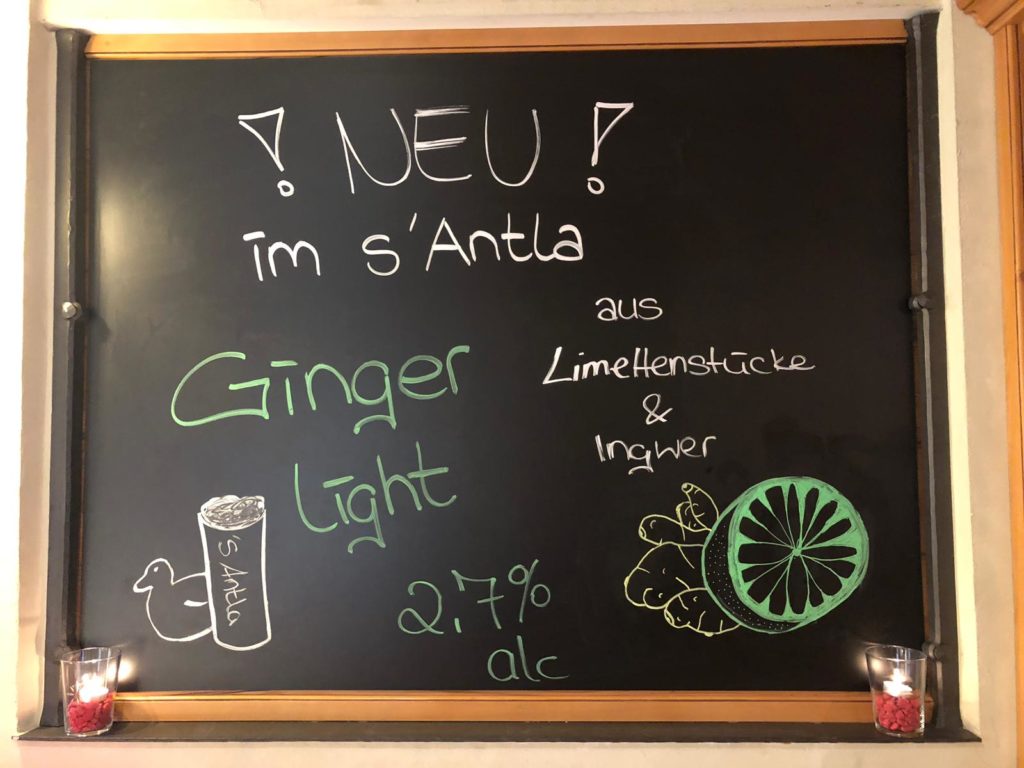 ! NEU !
im s'Antla
Ginger
light
2.7%
alc
aus
Limettenstücke
&
Ingwer
's Antla